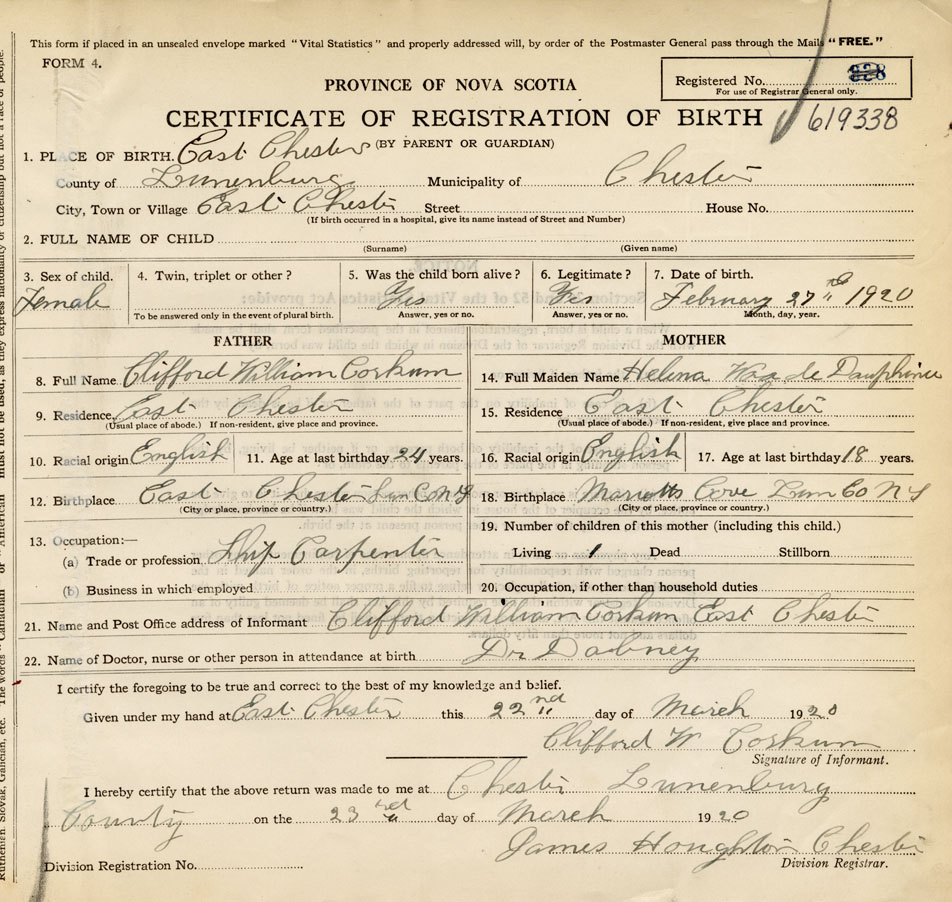 This form if placed in an unsealed envelope marked "Vital Statistics" and properly addressed will, by order of the Postmaster General pass through the Mails "FREE."
FORM 4.
PROVINCE OF NOVA SCOTIA
Registered No. 928
For use of Registrar General only.
CERTIFICATE OF REGISTRATION OF BIRTH
619338
(BY PARENT OR GUARDIAN)
1. PLACE OF BIRTH. East Chester
County of Lunenburg Municipality of Chester
City, Town or Village East Chester Street House No.
(If birth occurred in a hospital, give its name instead of Street and Number)
2. FULL NAME OF CHILD
(Surname) (Given name)
3. Sex of child. Female
4. Twin, triplet or other?
To be answered only in the event of plural birth.
5. Was the child born alive? Yes
Answer, yes or no.
6. Legitimate? Yes
Answer, yes or no.
7. Date of birth. February 27th 1920
Month, day, year.
FATHER
8. Full Name Clifford William Corkum
9. Residence East Chester
(Usual place of abode.) If non-resident, give place and province.
10. Racial origin English 11. Age at last birthday 24 years.
12. Birthplace East Chester Lun Co N S
(City or place, province or country.)
13. Occupation:—
(a) Trade or profession Ship Carpenter
(b) Business in which employed
MOTHER
14. Full Maiden Name Helena de Dauphinee
15. Residence East Chester
(Usual place of abode.) If non-resident, give place and province.
16. Racial origin English 17. Age at last birthday 18 years.
18. Birthplace Marriotts Cove Lun Co N S
(City or place, province or country.)
19. Number of children of this mother (including this child.)
Living 1 Dead Stillborn
20. Occupation, if other than household duties
21. Name and Post Office address of Informant Clifford William Corkum East Chester
22. Name of Doctor, nurse or other person in attendance at birth Dr Dabney
I certify the foregoing to be true and correct to the best of my knowledge and belief.
Given under my hand at East Chester this 22nd day of March 1920
Clifford W Corkum
Signature of Informant.
I hereby certify that the above return was made to me at Chester Lunenburg
County on the 23rd day of March 1920
James Houghton Chester
Division Registrar.
Division Registration No.